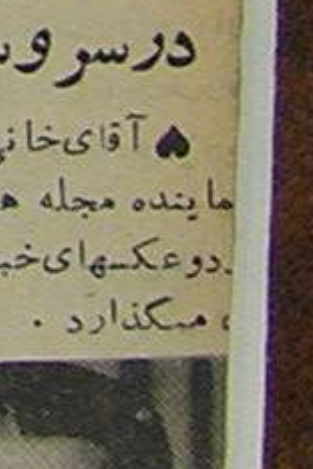 در سر و
♠ آقای خانی
ماینده مجله
دو عکسهای
میگذارد .